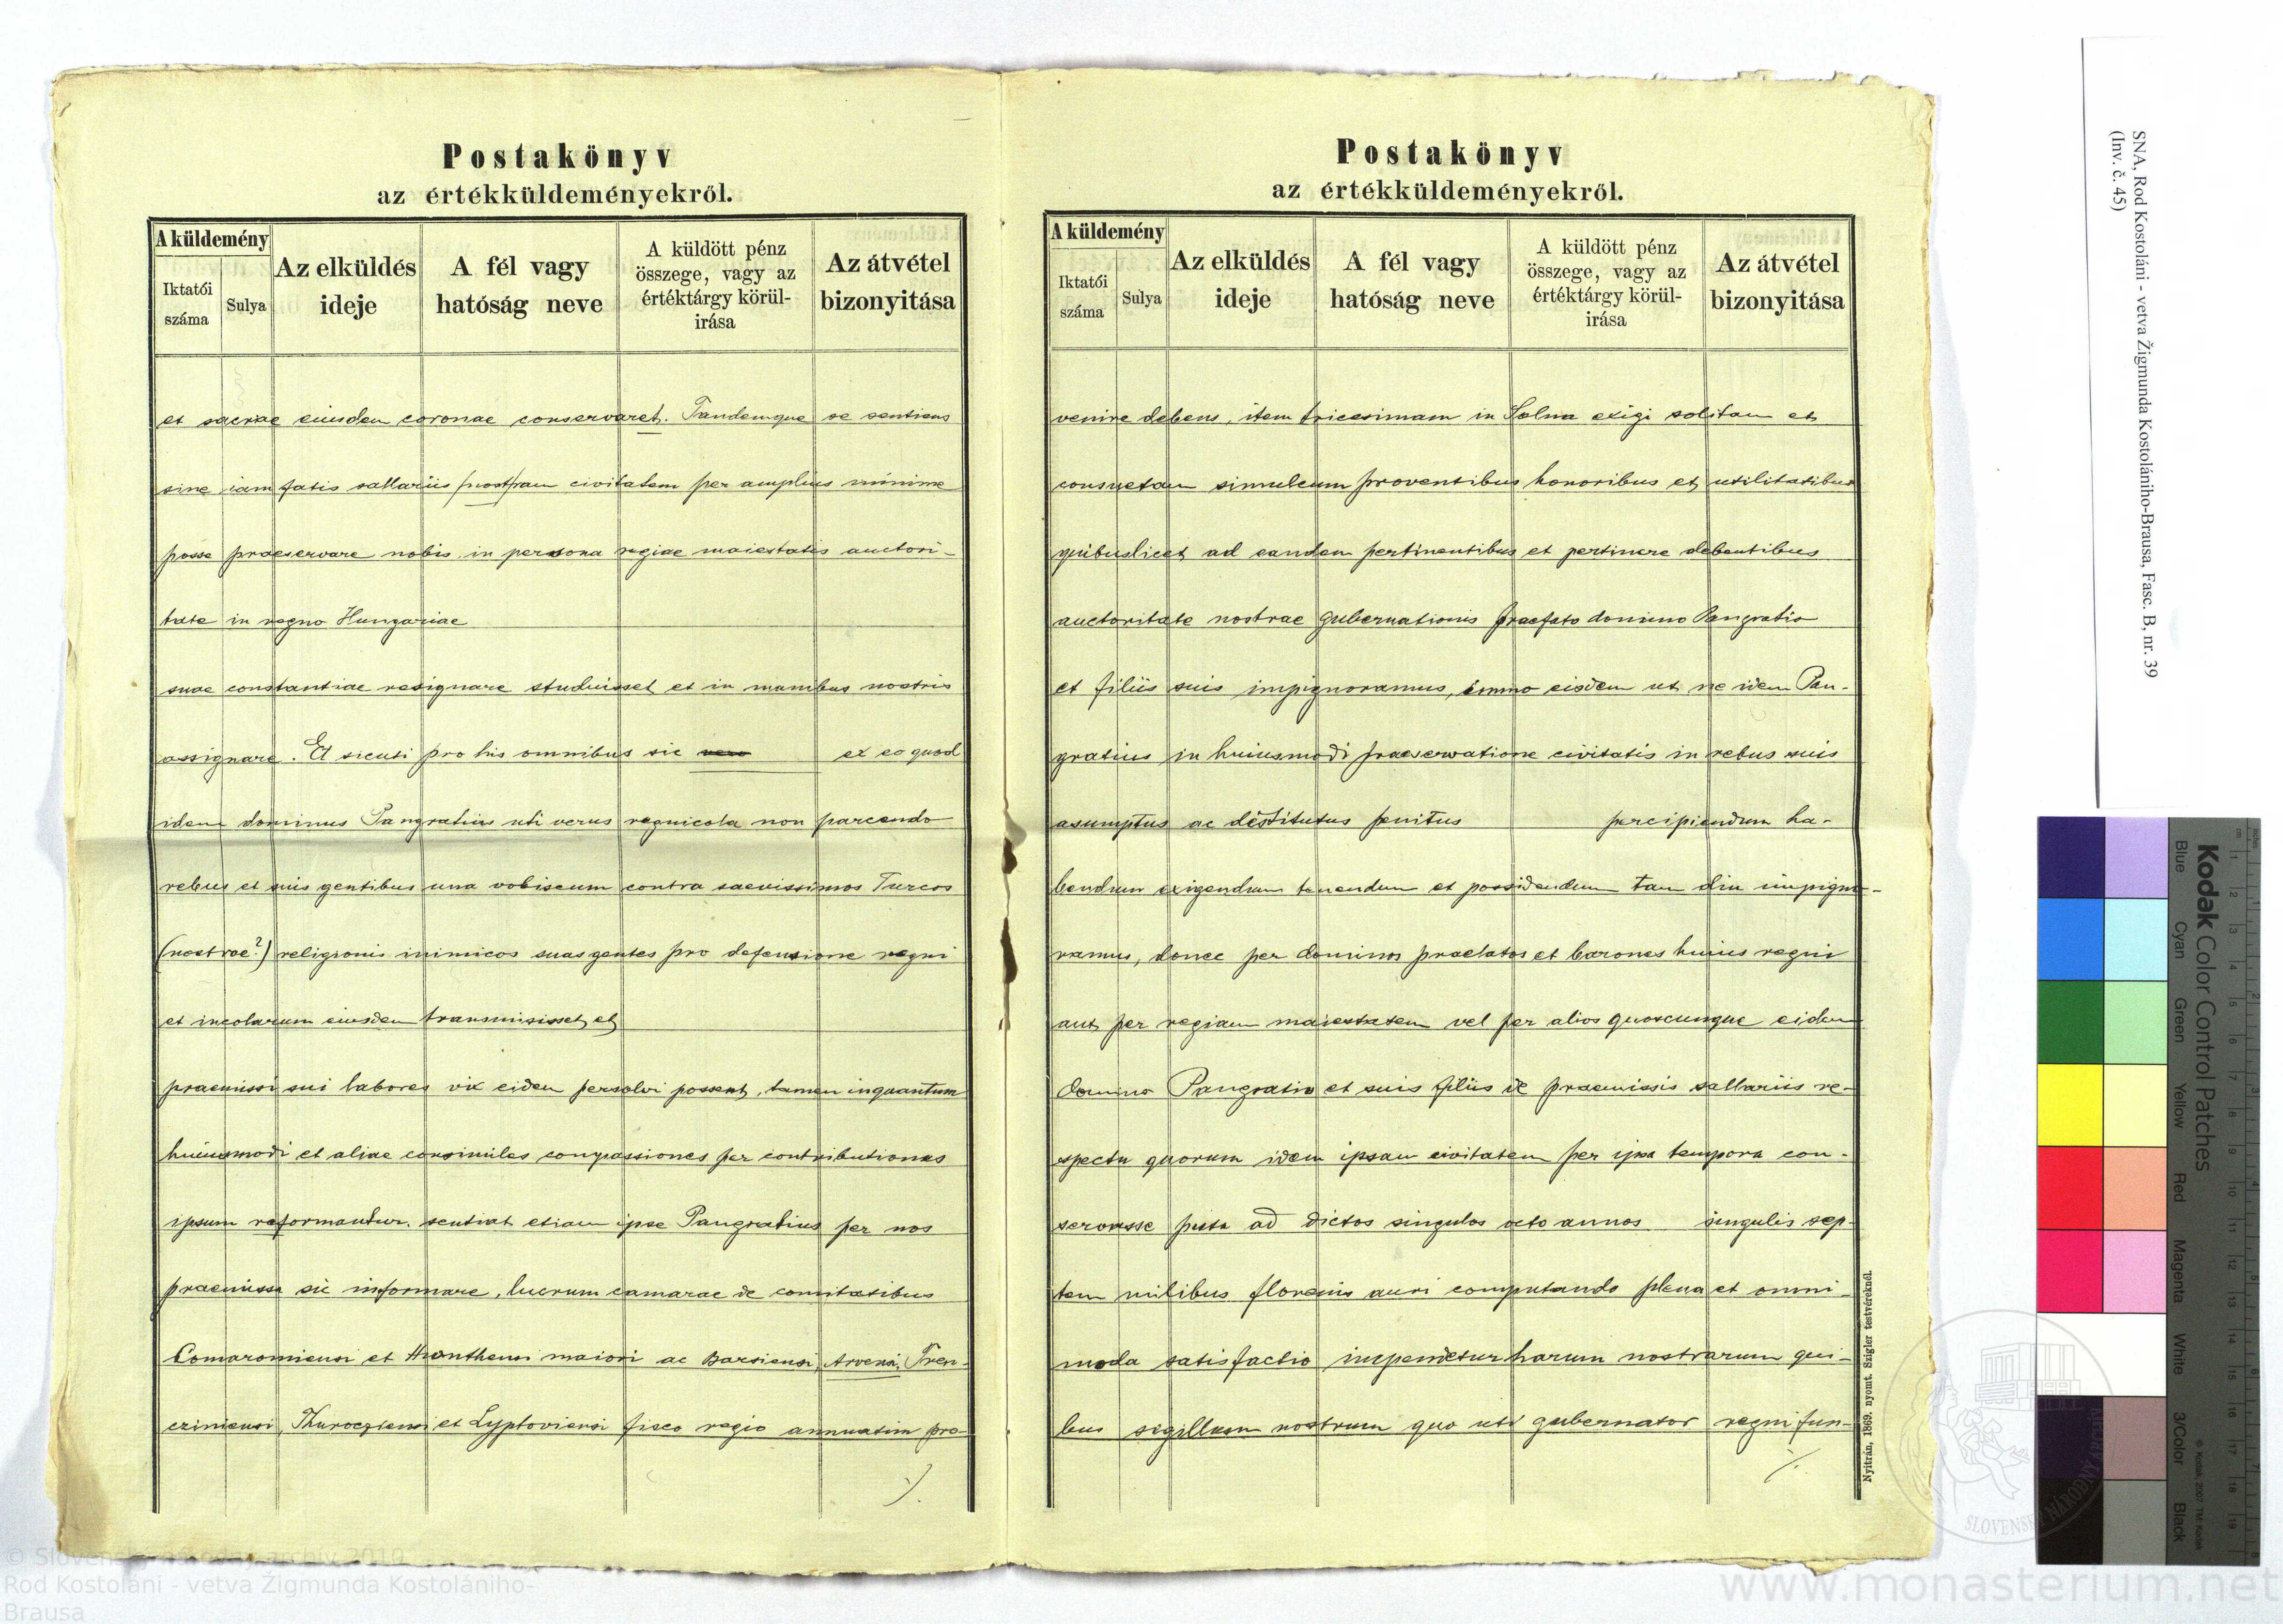 Postakönyv
az értékküldeményekről.
A küldemény
Iktatói száma
Sulya
Az elküldés ideje
A fél vagy hatóság neve
A küldött pénz összege, vagy az értéktárgy körül-irása
Az átvétel bizonyitása
et sacrae eiusdem coronae conservaret. Tandemque se sentiens
sine iam fatis sallariis praefpam civitatem per amplius minime
posse praeservare nobis in persona regiae maiestatis auctori-
tate in regno Hungariae
suae constantiae resignare studuisset et in manibus nostris
assignare. Et sicuti pro his omnibus sic ex eo quod
idem dominus Pangratius uti verus regnicola non parcendo
rebus et suis gentibus una vobiscum contra saevissimos Turcos
(nostrae?) religionis inimicos suas gentes pro defensione regni
et incolarum eiusdem transmisisset et
praemissi sui labores vix eidem persolvi possent, tamen inquantum
huiusmodi et aliae consimiles compassiones per contributiones
ipsum reformantur. sentiat etiam ipse Pangratius per nos
praemissa sic informare, lucrum camarae de comitatibus
Comaromiensi et Honthensi maiori ac Barsiensi, Arvensi, Tren-
cziniensi, Thurocziensi et Lyptoviensi fisco regio annuatim pro-
./.
Postakönyv
az értékküldeményekről.
A küldemény
Iktatói száma
Sulya
Az elküldés ideje
A fél vagy hatóság neve
A küldött pénz összege, vagy az értéktárgy körül-irása
Az átvétel bizonyitása
venire debens, item tricesimam in Solna exigi solitam et
consuetam simulcum proventibus honoribus et utilitatibus
quibuslicet ad eandem pertinentibus et pertinere debentibus
auctoritate nostrae gubernationis praefato domino Pangratio
et filiis suis impignoramus, immo eisdem ut ne idem Pan-
gratius in huiusmodi praeservatione civitatis in rebus suis
asumptus ac destitutus penitus percipiendum ha-
bendum exigendum tenendum et possidendum tam diu impigno-
ramus, donec per dominos praelatos et barones huius regni
aut per regiam maiestatem vel per alios quoscunque eidem
domino Pangratio et suis filiis de praemissis sallariis re-
spectu quorum idem ipsam civitatem per ipsa tempora con-
servasse puta ad dictos singulos octo annos singulis sep-
tem milibus florenis auri computando plena et omni-
moda satisfactio impendetur harum nostrarum qui-
bus sigillum nostrum quo uti gubernator regni fun-
./.
Nyitrán, 1869. nyomt. Szigler testvéreknél.
SNA, Rod Kostoláni - vetva Žigmunda Kostolániho-Brausa, Fasc. B, nr. 39
(Inv. č. 45)
Kodak Color Control Patches
Blue
Cyan
Green
Yellow
Red
Magenta
White
3/Color
Black
© Kodak, 2007 TM: Kodak
© Slovenský národný archív 2010
Rod Kostoláni - vetva Žigmunda Kostolániho-
Brausa
www.monasterium.net